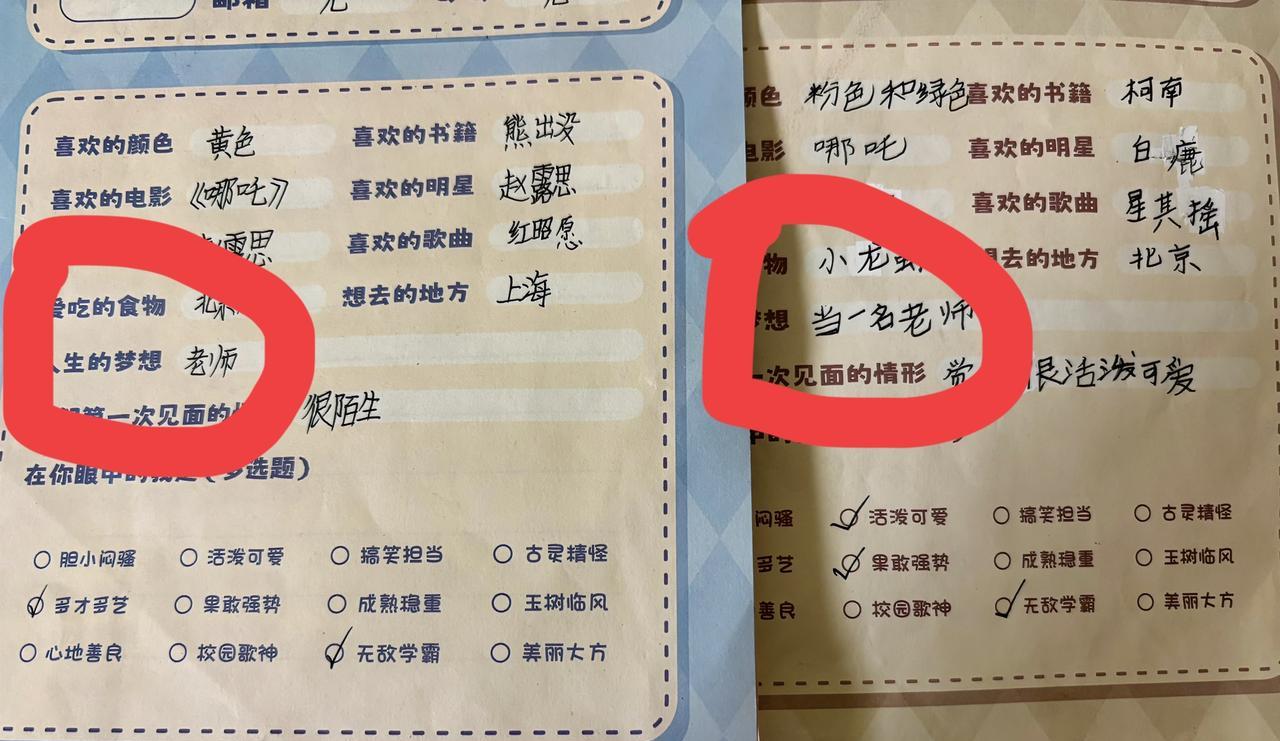 邮箱 无
喜欢的颜色 黄色 喜欢的书籍 熊出没
喜欢的电影 《哪吒》 喜欢的明星 赵露思
露思 喜欢的歌曲 红昭愿
爱吃的食物 北 想去的地方 上海
人生的梦想 老师
第一次见面的 很陌生
在你眼中的我是(多选题)
胆小闷骚 活泼可爱 搞笑担当 古灵精怪
多才多艺 果敢强势 成熟稳重 玉树临风
心地善良 校园歌神 无敌学霸 美丽大方
颜色 粉色和绿色 喜欢的书籍 柯南
电影 哪吒 喜欢的明星 白鹿
喜欢的歌曲 星其摇
物 小龙虾 想去的地方 北京
梦想 当一名老师
一次见面的情形 觉 很活泼可爱
闷骚 活泼可爱 搞笑担当 古灵精怪
多艺 果敢强势 成熟稳重 玉树临风
善良 校园歌神 无敌学霸 美丽大方